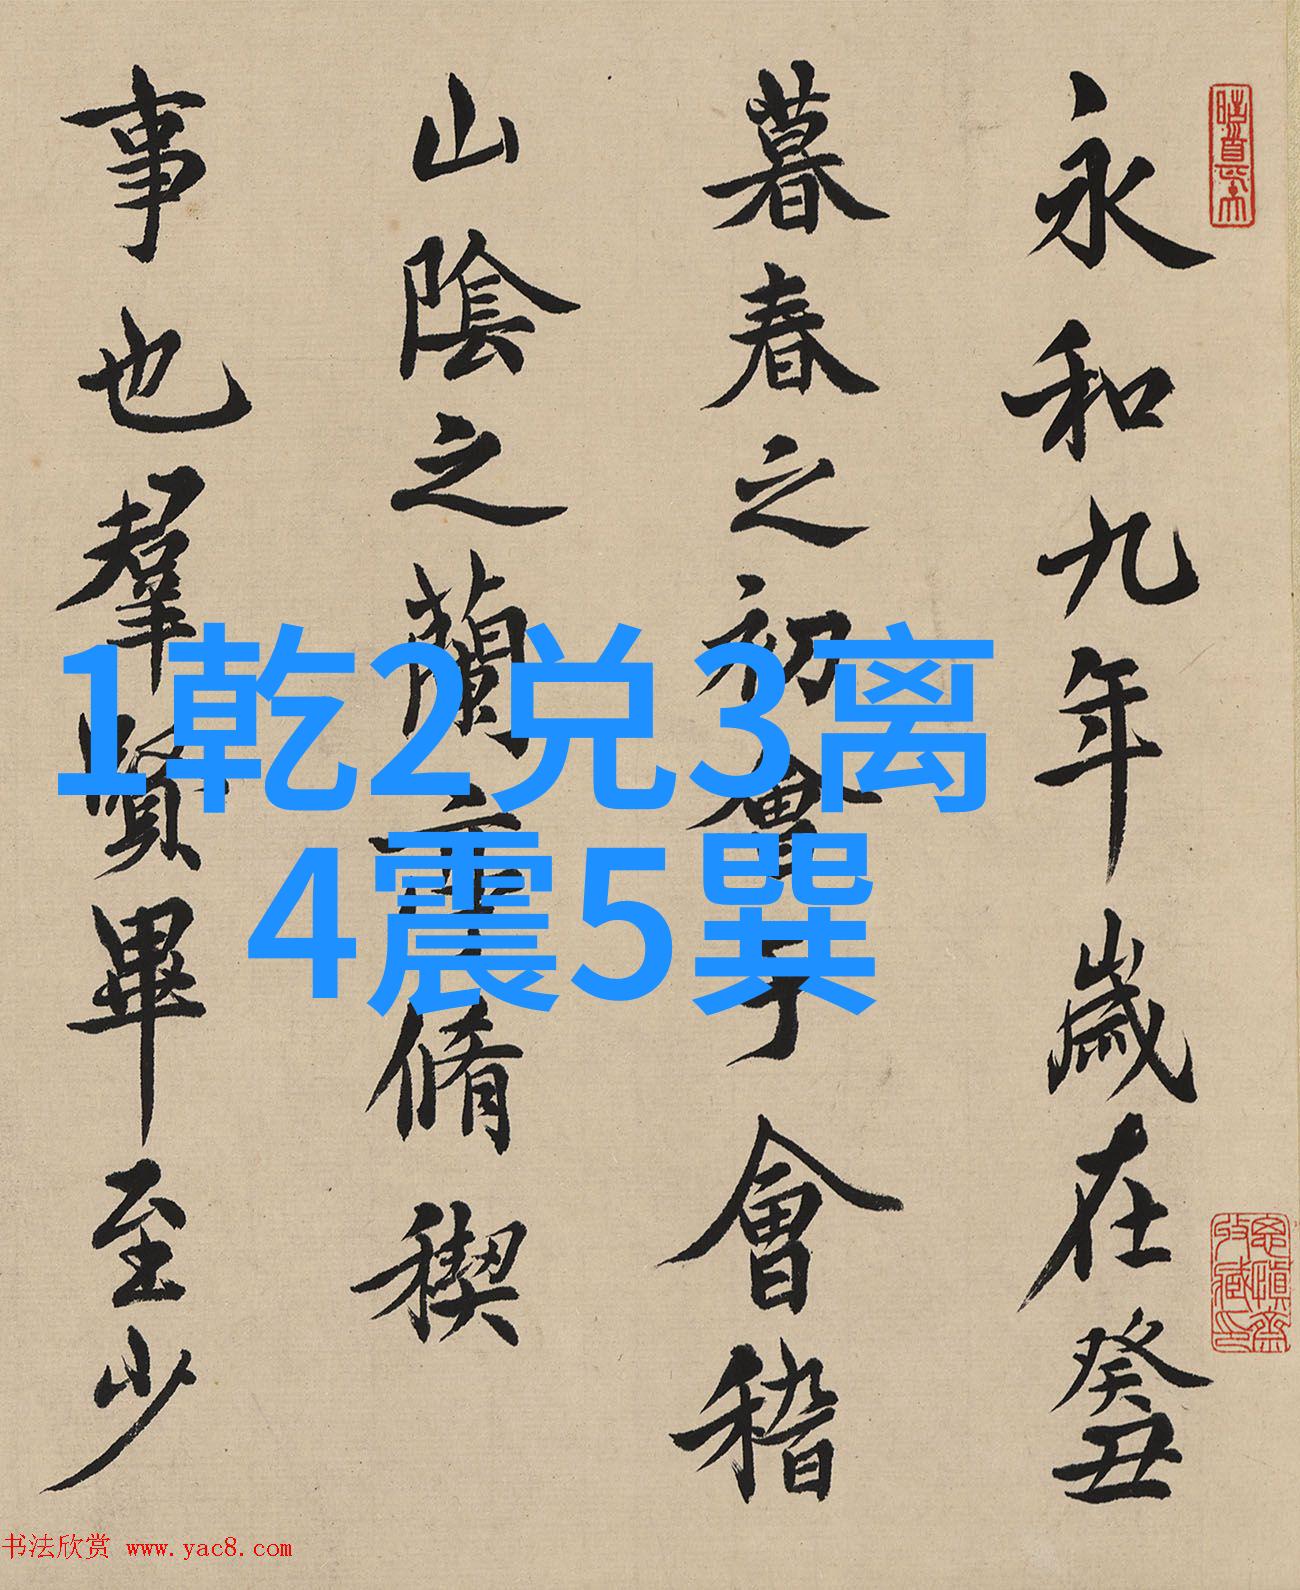 永和九年歲在癸丑
暮春之初會于會稽
山陰之蘭亭脩稧
事也羣賢畢至少
1乾2兑3离
4震5巽
书法欣赏 www.yac8.com